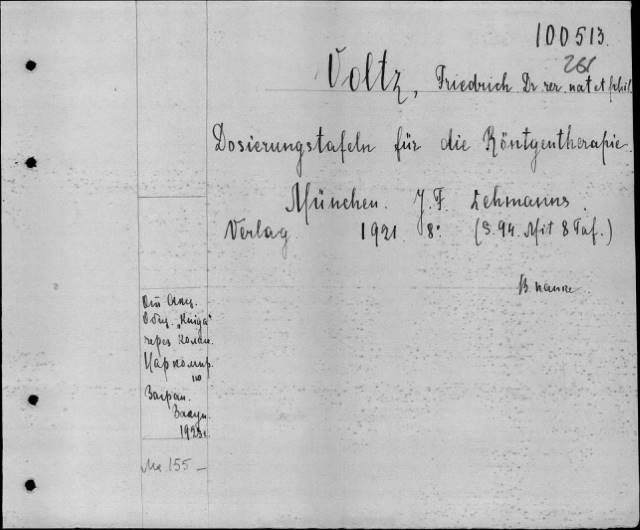 100513.
261
Voltz, Friedrich Dr rer. nat et phil.
Dosierungstafeln für die Röntgentherapie.
München. J. F. Lehmanns
Verlag 1921. 8° (S. 94. Mit 8 Taf.)
В папке
От Акц.
Общ. „Книга"
через
по
Загран.
Закуп.
1923 г.
Мк. 155 –